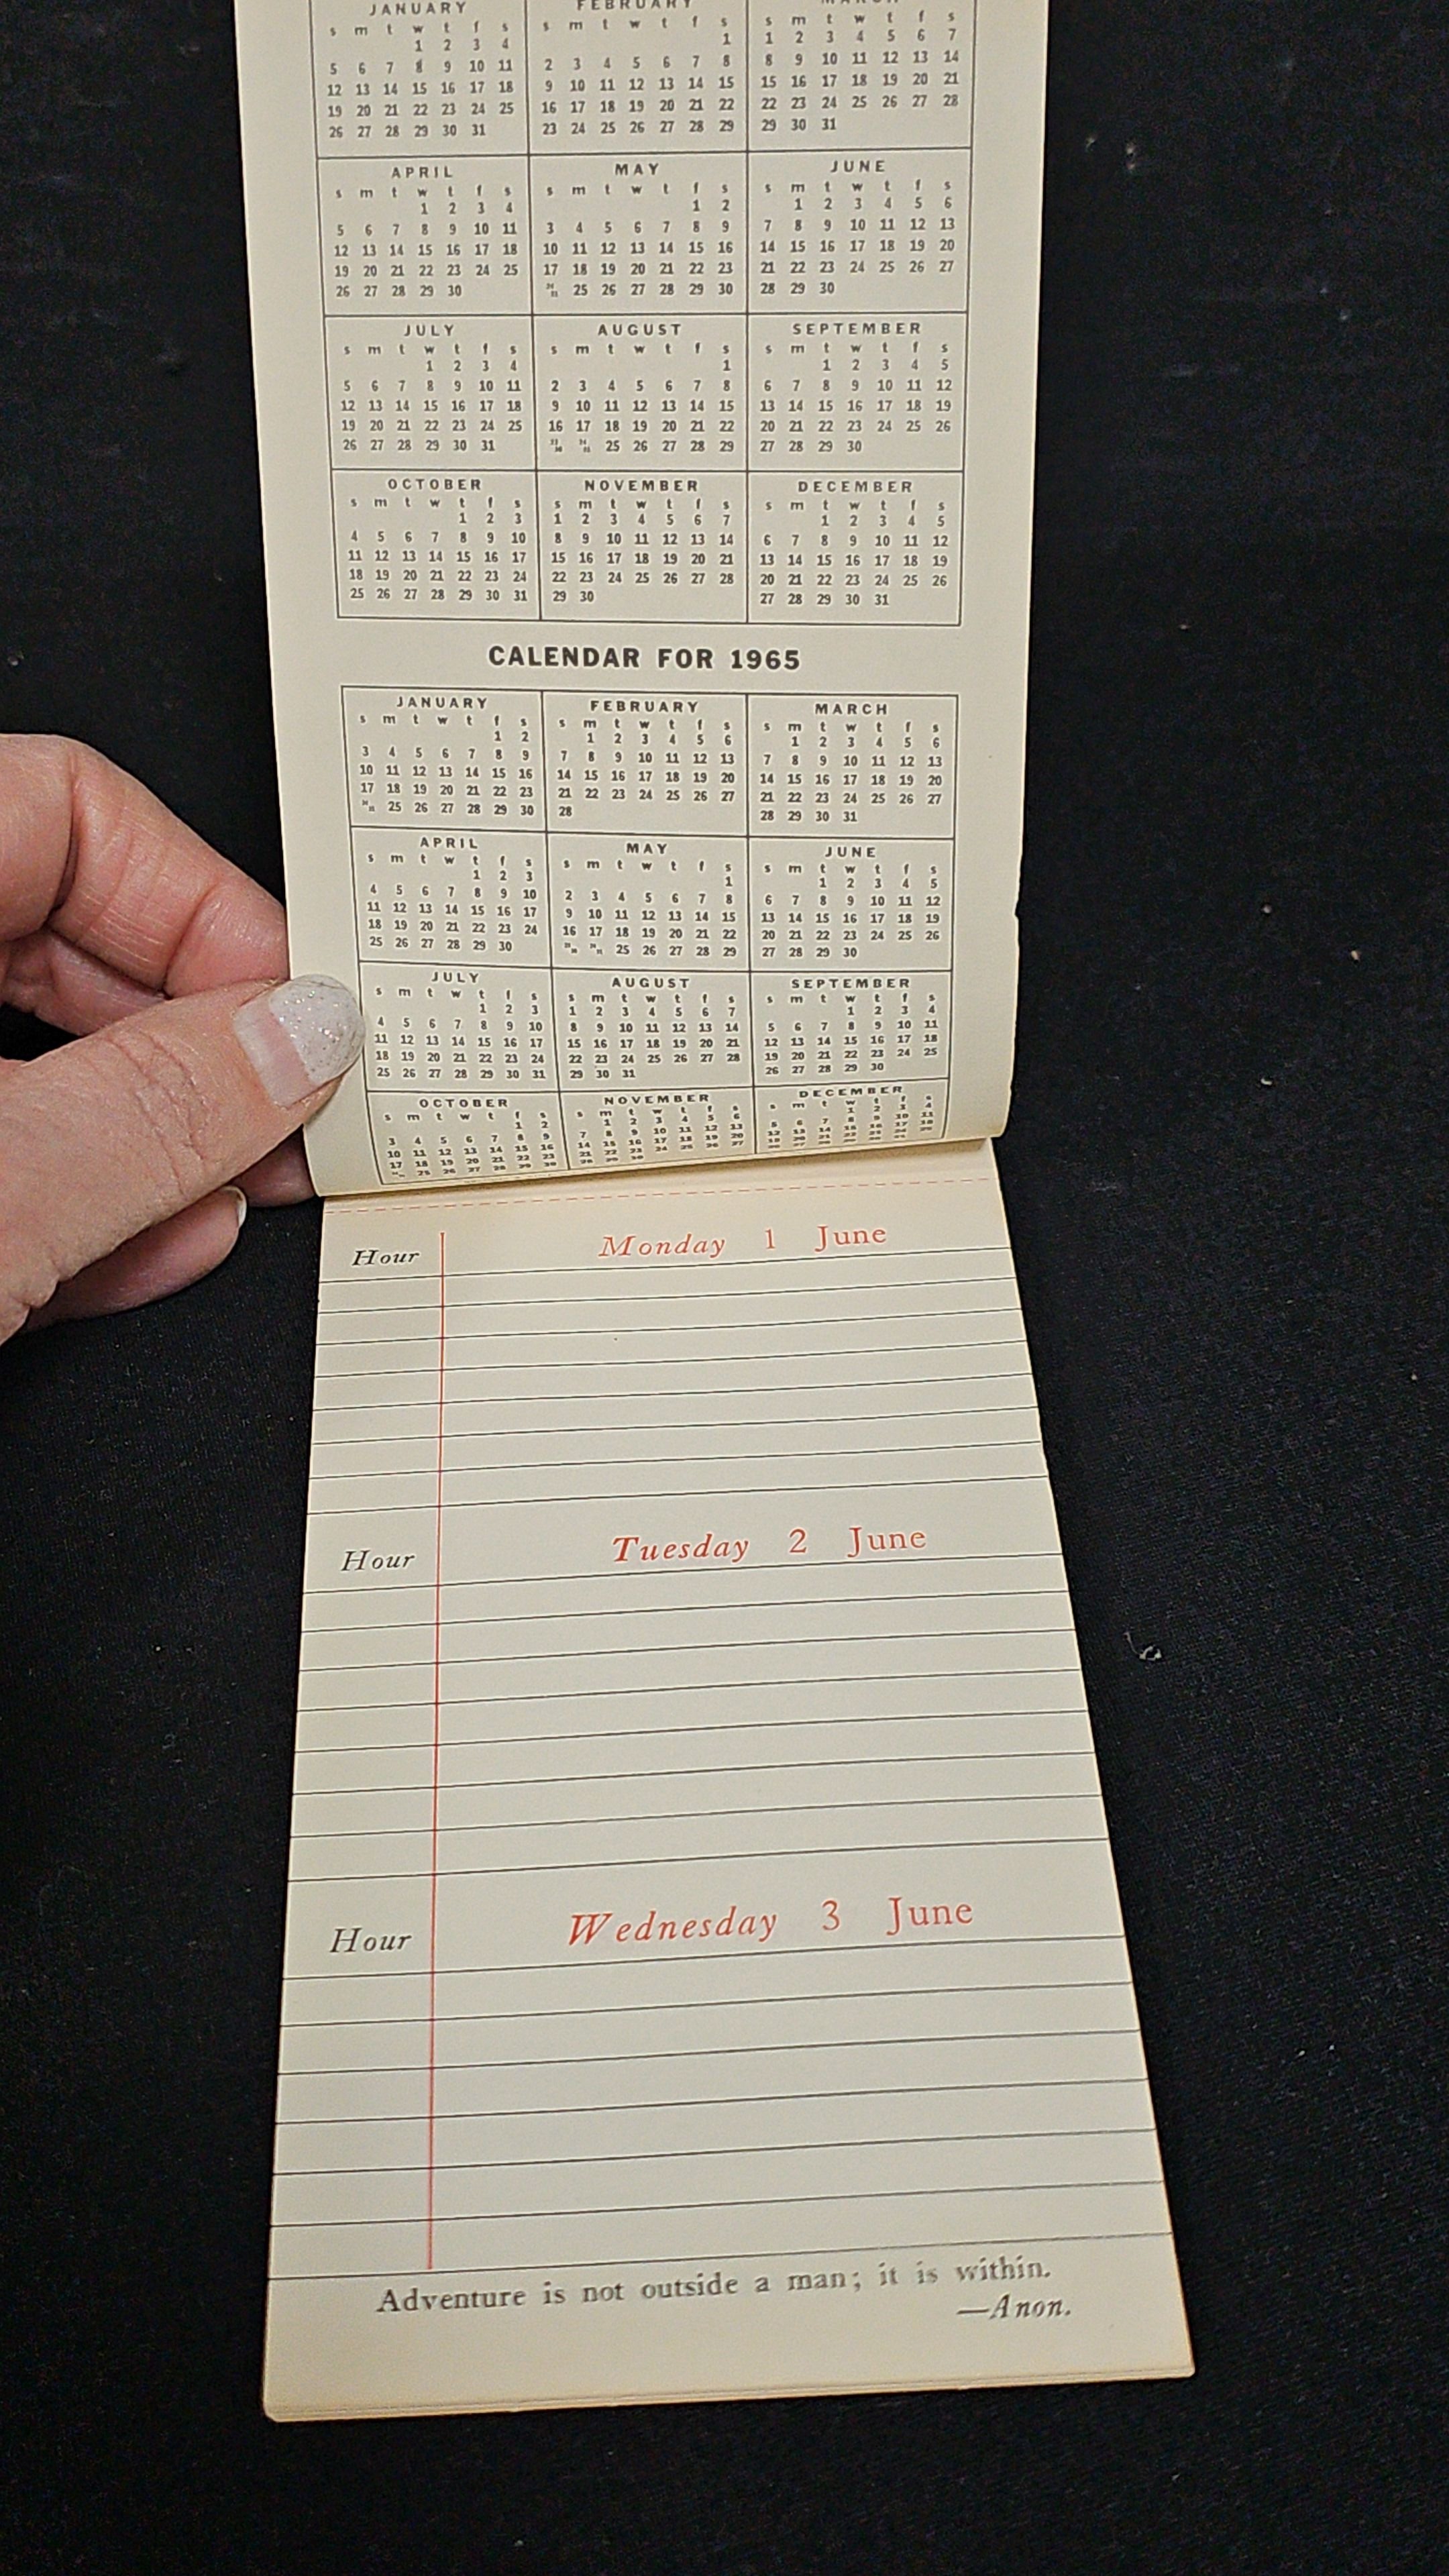 JANUARY
s m t w t f s
1 2 3 4
5 6 7 8 9 10 11
12 13 14 15 16 17 18
19 20 21 22 23 24 25
26 27 28 29 30 31
FEBRUARY
s m t w t f s
1
2 3 4 5 6 7 8
9 10 11 12 13 14 15
16 17 18 19 20 21 22
23 24 25 26 27 28 29
s m t w t f s
1 2 3 4 5 6 7
8 9 10 11 12 13 14
15 16 17 18 19 20 21
22 23 24 25 26 27 28
29 30 31
APRIL
s m t w t f s
1 2 3 4
5 6 7 8 9 10 11
12 13 14 15 16 17 18
19 20 21 22 23 24 25
26 27 28 29 30
MAY
s m t w t f s
1 2
3 4 5 6 7 8 9
10 11 12 13 14 15 16
17 18 19 20 21 22 23
25 26 27 28 29 30
JUNE
s m t w t f s
1 2 3 4 5 6
7 8 9 10 11 12 13
14 15 16 17 18 19 20
21 22 23 24 25 26 27
28 29 30
JULY
s m t w t f s
1 2 3 4
5 6 7 8 9 10 11
12 13 14 15 16 17 18
19 20 21 22 23 24 25
26 27 28 29 30 31
AUGUST
s m t w t f s
1
2 3 4 5 6 7 8
9 10 11 12 13 14 15
16 17 18 19 20 21 22
25 26 27 28 29
SEPTEMBER
s m t w t f s
1 2 3 4 5
6 7 8 9 10 11 12
13 14 15 16 17 18 19
20 21 22 23 24 25 26
27 28 29 30
OCTOBER
s m t w t f s
1 2 3
4 5 6 7 8 9 10
11 12 13 14 15 16 17
18 19 20 21 22 23 24
25 26 27 28 29 30 31
NOVEMBER
s m t w t f s
1 2 3 4 5 6 7
8 9 10 11 12 13 14
15 16 17 18 19 20 21
22 23 24 25 26 27 28
29 30
DECEMBER
s m t w t f s
1 2 3 4 5
6 7 8 9 10 11 12
13 14 15 16 17 18 19
20 21 22 23 24 25 26
27 28 29 30 31
CALENDAR FOR 1965
JANUARY
s m t w t f s
1 2
3 4 5 6 7 8 9
10 11 12 13 14 15 16
17 18 19 20 21 22 23
25 26 27 28 29 30
FEBRUARY
s m t w t f s
1 2 3 4 5 6
7 8 9 10 11 12 13
14 15 16 17 18 19 20
21 22 23 24 25 26 27
28
MARCH
s m t w t f s
1 2 3 4 5 6
7 8 9 10 11 12 13
14 15 16 17 18 19 20
21 22 23 24 25 26 27
28 29 30 31
APRIL
s m t w t f s
1 2 3
4 5 6 7 8 9 10
11 12 13 14 15 16 17
18 19 20 21 22 23 24
25 26 27 28 29 30
MAY
s m t w t f s
1
2 3 4 5 6 7 8
9 10 11 12 13 14 15
16 17 18 19 20 21 22
25 26 27 28 29
JUNE
s m t w t f s
1 2 3 4 5
6 7 8 9 10 11 12
13 14 15 16 17 18 19
20 21 22 23 24 25 26
27 28 29 30
JULY
s m t w t f s
1 2 3
4 5 6 7 8 9 10
11 12 13 14 15 16 17
18 19 20 21 22 23 24
25 26 27 28 29 30 31
AUGUST
s m t w t f s
1 2 3 4 5 6 7
8 9 10 11 12 13 14
15 16 17 18 19 20 21
22 23 24 25 26 27 28
29 30 31
SEPTEMBER
s m t w t f s
1 2 3 4
5 6 7 8 9 10 11
12 13 14 15 16 17 18
19 20 21 22 23 24 25
26 27 28 29 30
OCTOBER
s m t w t f s
1 2
3 4 5 6 7 8 9
10 11 12 13 14 15 16
17 18 19 20 21 22 23
25 26 27 28 29 30
NOVEMBER
s m t w t f s
1 2 3 4 5 6
7 8 9 10 11 12 13
14 15 16 17 18 19 20
DECEMBER
s m t w t f s
1 2 3 4
5 6 7 8 9 10 11
Hour Monday 1 June
Hour Tuesday 2 June
Hour Wednesday 3 June
Adventure is not outside a man; it is within.
—Anon.